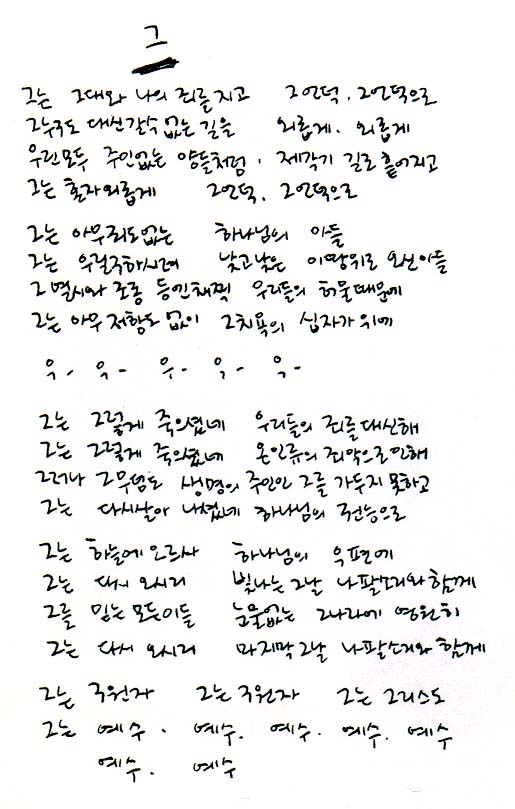 그
그는 그대와 나의 죄를 지고 그언덕, 그언덕으로
그누구도 대신갈수 없는 길을 외롭게, 외롭게
우린모두 주인없는 양들처럼, 제각기 길로 흩어지고
그는 혼자외롭게 그언덕, 그언덕으로
그는 아무죄도없는 하나님의 아들
그는 우릴구하시려 낮고낮은 이땅위로 오신아들
그 멸시와 조롱 등인채찍 우리들의 허물때문에
그는 아무 저항도 없이 그치욕의 십자가 위에
우- 우- 우- 우- 우-
그는 그렇게 죽으셨네 우리들의 죄를 대신해
그는 그렇게 죽으셨네 온인류의 죄악으로인해
그러나 그무덤도 생명의 주인인 그를 가두지 못하고
그는 다시살아 나셨네 하나님의 권능으로
그는 하늘에오르사 하나님의 우편에
그는 다시 오시리 빛나는그날 나팔소리와 함께
그를 믿는 모든이들 눈물없는 그나라에 영원히
그는 다시 오시리 마지막그날 나팔소리와 함께
그는 구원자 그는 구원자 그는 그리스도
그는 예수. 예수. 예수. 예수. 예수
예수. 예수